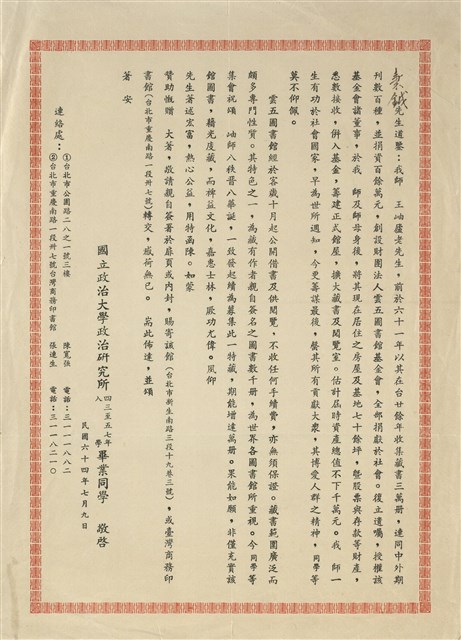 先生道鑒：我師　王岫廬老先生，前於六十一年以其在台廿餘年收集藏書三萬册，連同中外期
刊數百種，並捐資百餘萬元，創設財團法人雲五圖書館基金會，全部捐獻於社會。復立遺囑，授權該
基金會諸董事，於我　師及師母身後，將其現在居住之房屋及基地七十餘坪，暨股票與存款等財產，
悉數接收，併入基金，籌建正式館屋，擴大藏書及閱覽室。估計屆時資產總值不下千萬元。我　師一
生有功於社會國家，早為世所週知，今更籌謀最後，罄其所有貢獻大衆，其博愛人群之精神，同學等
莫不仰佩。
雲五圖書館經於客歲十月起公開借書及供閱覽，不收任何手續費，亦無須保證。藏書範圍廣泛而
頗多專門性質。其特色之一，為藏有作者親自簽名之圖書數千册，為世界各圖書館所重視。今同學等
集會祝頌　岫師八秩晉八華誕，一致發起續為募集此一特藏，期能增達萬册。果能如願，非僅充實該
館圖書，積光度藏，而裨益文化，嘉惠士林，厥功尤偉。夙仰
先生著述宏富，熱心公益，用特函陳。如蒙
贊助慨贈　大著，敬請親自簽署於扉頁或內封，賜寄該館（台北市新生南路三段十九巷三號），或臺灣商務印
書館（台北市重慶南路一段卅七號）轉交，感荷無已。　耑此佈達，並頌
著　安
國立政治大學政治研究所　四三至五七年　畢業同學　敬啓
人
民國六十四年七月九日
連絡處：①台北市公園路二八之一號三樓　陳寬強　電話：三一一一八八二
②台北市重慶南路一段卅七號台灣商務印書館　張連生　電話：三一一八二一〇